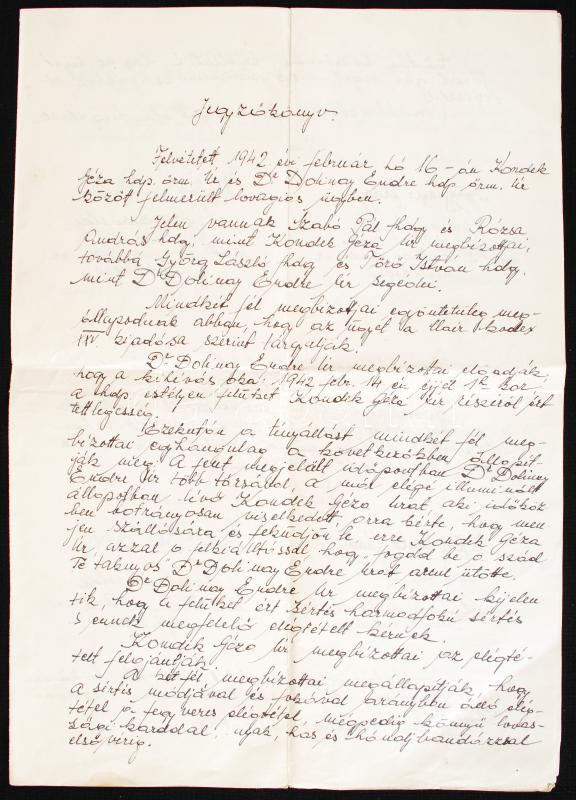 Jegyzőkönyv.
Felvétetett 1942. évi február hó 16-án Kondek
Géza hdp. őrm. úr és Dr Dolinay Endre hdp. őrm. úr
között felmerült lovagias ügyben.
Jelen vannak Szabó Pál fhdgy és Rózsa
András hdgy, mint Kondek Géza úr megbizottai,
továbbá György László fhdgy és Törő István hdgy.
mint Dr Dolinay Endre úr segédei.
Mindkét fél megbizottai egyöntetüleg meg-
állapodnak abban, hogy az ügyet a Clair kodex
kiadása szerint tárgyalják.
Dr. Dolinay Endre úr megbizottai előadják,
hogy a kihívás oka: 1942 febr. 14 én éjjel 1h kor
a hdp. estélyen felüket Kondek Géza úr részéről ért
tettlegesség.
Ezekután a tényállást mindkét fél meg-
bizottai egyhangulag a következőkben állapit-
ják meg. A fent megjelölt időpontban Dr Dolinay
Endre úr több társával, a már eléggé illuminált
állapotban lévő Kondek Géza urat, aki időköz-
ben botrányosan viselkedett, arra kérte, hogy men-
jen szállására és feküdjön le, erre Kondek Géza
úr, azzal a felkiáltással, hogy „fogdd be a szád
Te taknyos" Dr Dolinay Endre urat arcul ütötte.
Dr Dolinay Endre úr megbizottai kijelen-
tik, hogy a felüket ért sértés harmadfokú sértés
s ennek megfelelő elégtételt kérnek.
Kondek Géza úr megbizottai az elégté-
telt felajánlják.
A két fél megbizottai megállapitják, hogy
a sértés módjával és fokával arányban álló elég-
tétel a fegyveres elégtétel, mégpedig könnyű lovas-
sági karddal, nyak, has és bandázzsal
első vérig.